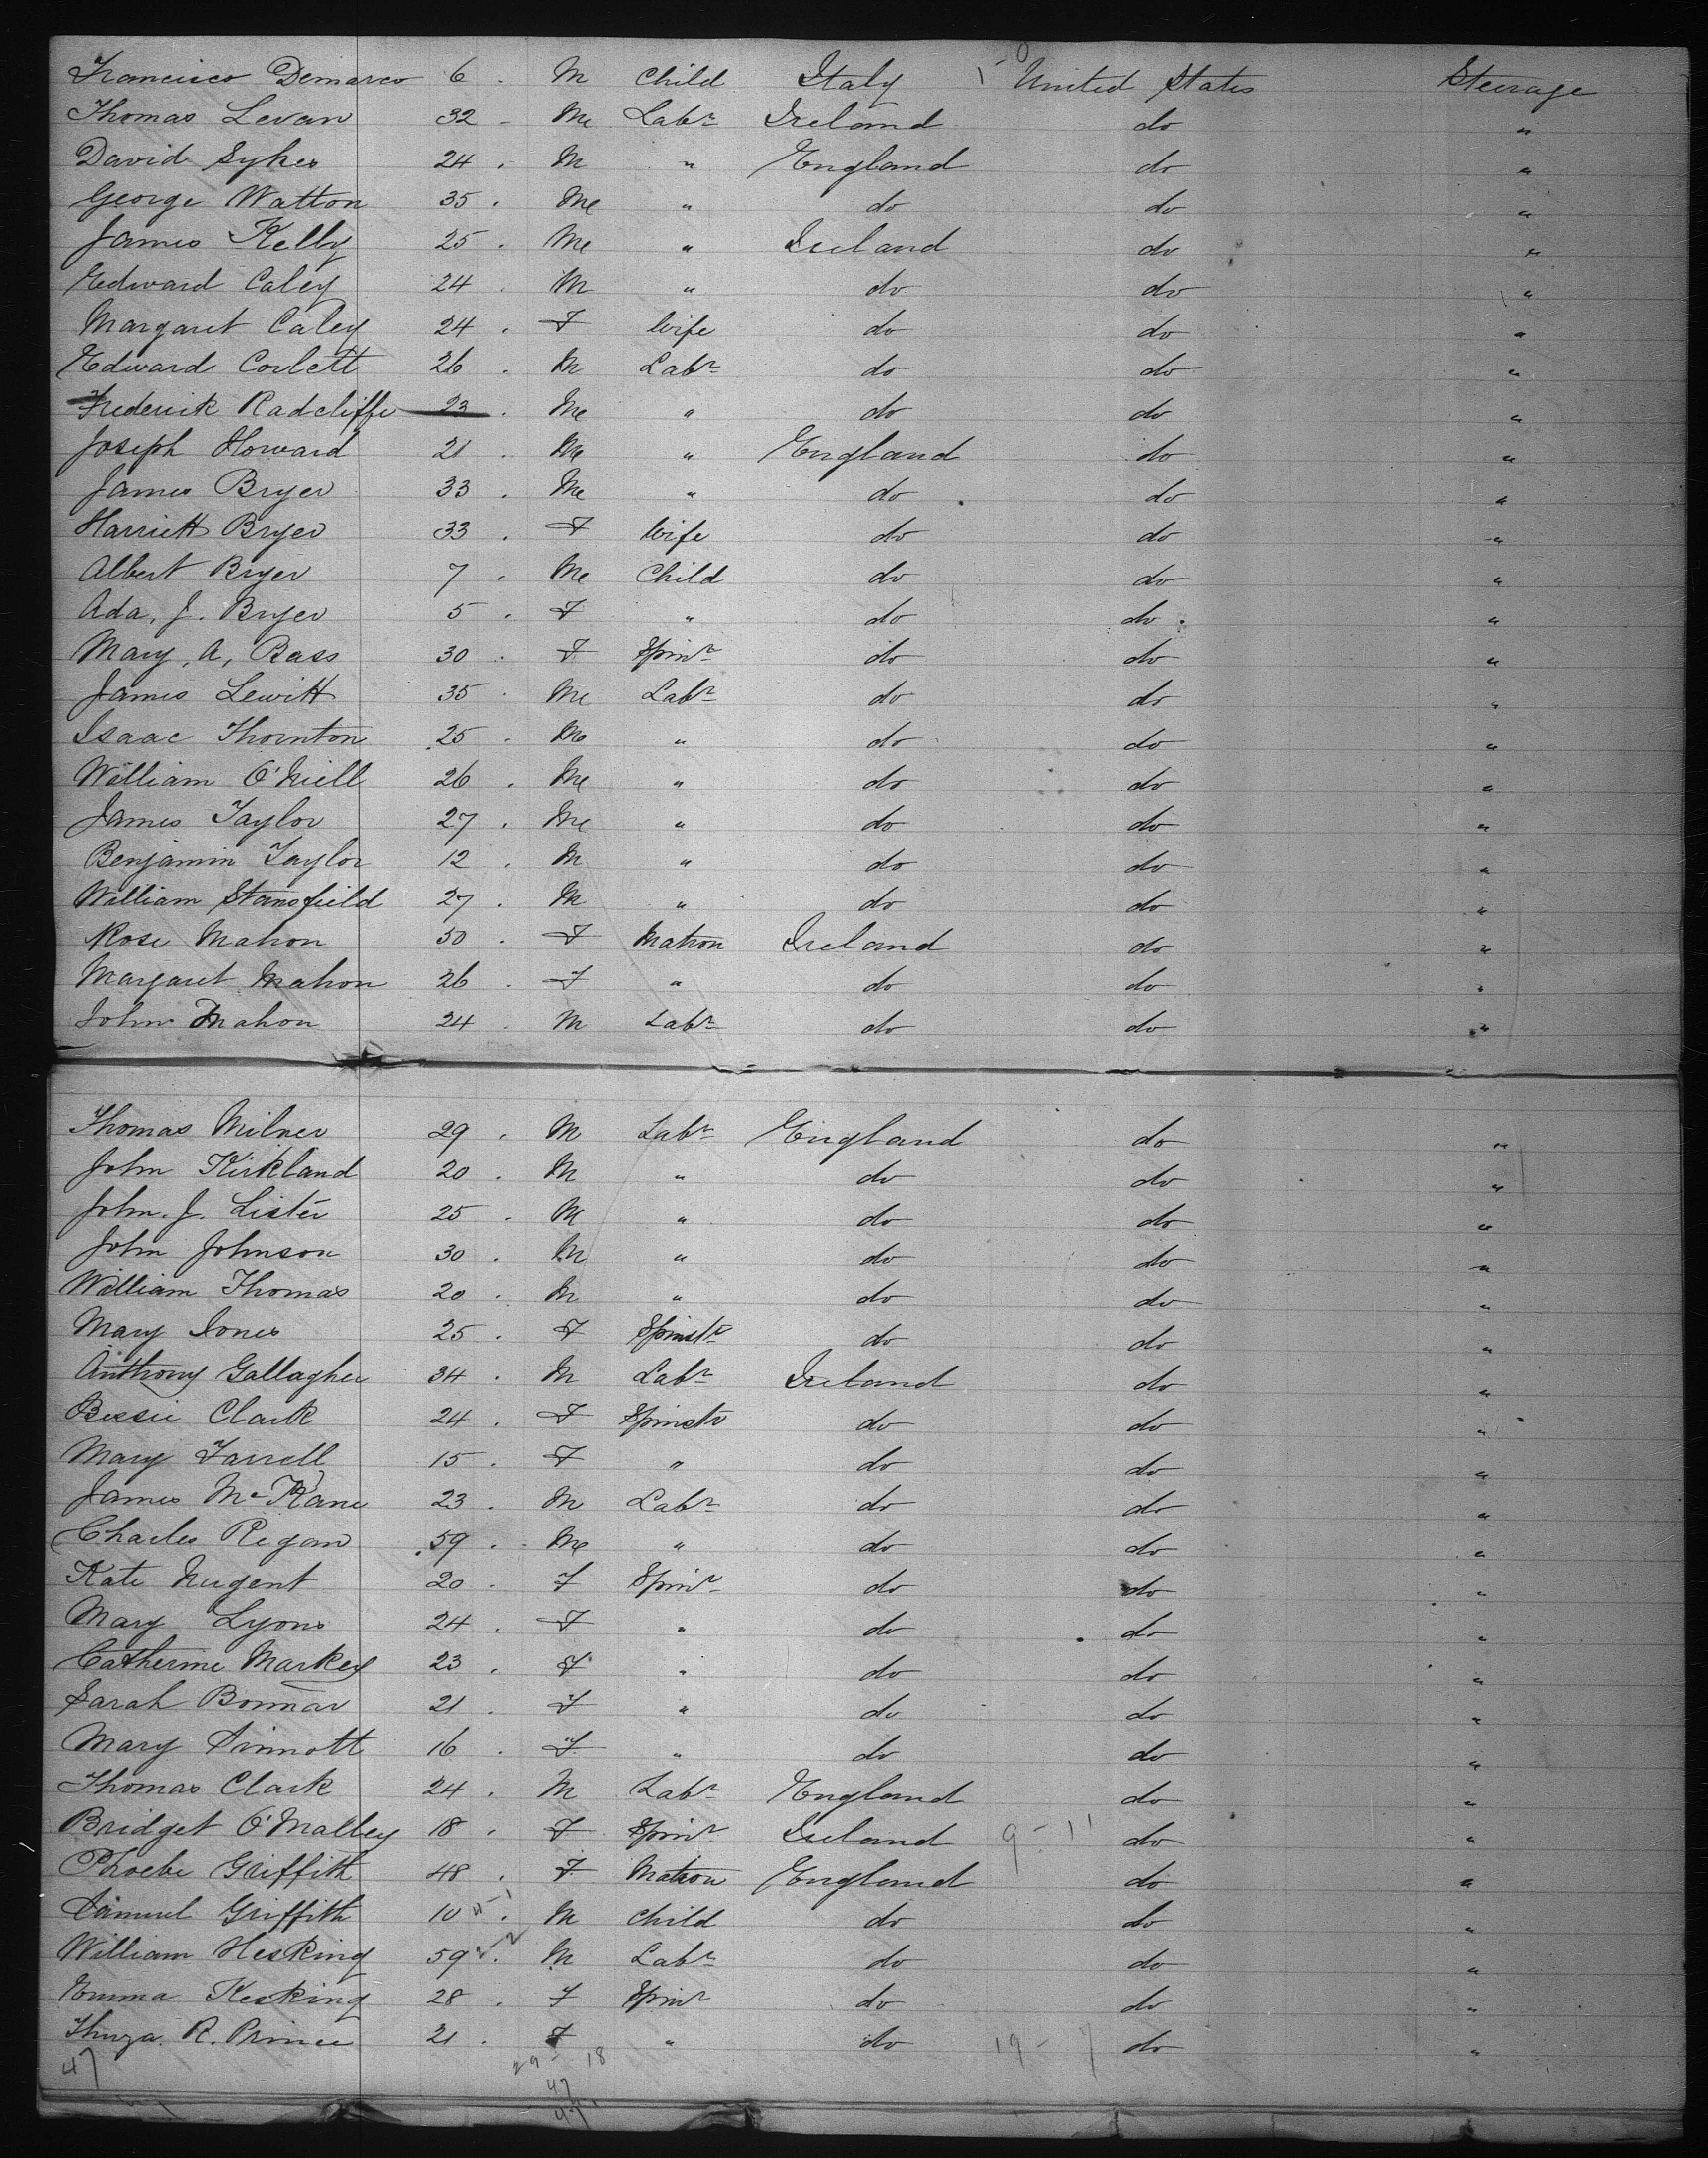 Francisco Demarco 6 . M Child Italy 1-0 United States Steerage
Thomas Levan 32 - M Labr Ireland do "
David Sykes 24 . M " England do "
George Watton 35 . M " do do "
James Kelly 25 . M " Ireland do "
Edward Caley 24 . M " do do "
Margaret Caley 24 . F Wife do do "
Edward Corlett 26 . M Labr do do "
Frederick Radcliffe 23 . M " do do "
Joseph Howard 21 . M " England do "
James Bryer 33 . M " do do "
Harriett Bryer 33 . F Wife do do "
Albert Bryer 7 . M Child do do "
Ada, J. Bryer 5 . F " do do "
Mary, A, Bass 30 . F Spinr do do "
James Lewitt 35 . M Labr do do "
Isaac Thornton 25 . M " do do "
William O'Niell 26 . M " do do "
James Taylor 27 . M " do do "
Benjamin Taylor 12 . M " do do "
William Stansfield 27 . M " do do "
Rose Mahon 50 . F Matron Ireland do "
Margaret Mahon 26 . F " do do "
John Mahon 24 . M Labr do do "
Thomas Milner 29 . M Labr England do "
John Kirkland 20 . M " do do "
John. J. Lister 25 . M " do do "
John Johnson 30 . M " do do "
William Thomas 20 . M " do do "
Mary Jones 25 . F Spinstr do do "
Anthony Gallagher 34 . M Labr Ireland do "
Bessie Clark 24 . F Spinstr do do "
Mary Farrell 15 . F " do do "
James McKane 23 . M Labr do do "
Charles Regan 59 . M " do do "
Kate Nugent 20 . F Spinr do do "
Mary Lyons 24 . F " do do "
Catherine Markey 23 . F " do do "
Sarah Bonnar 21 . F " do do "
Mary Sinnott 16 . F " do do "
Thomas Clark 24 . M Labr England do "
Bridget O'Malley 18 . F Spinr Ireland 9 - 11 do "
Phoebe Griffith 48 . F Matron England do "
Samuel Griffith 10 . M Child do do "
William Hesking 59 . M Labr do do "
Emma Hesking 28 . F Spinr do do "
R. Prince 21 . F " do 19 - 7 do "
47 29 - 18
47
47